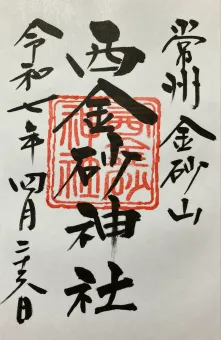 常州 金砂山
西金砂神社
令和七年四月二十六日